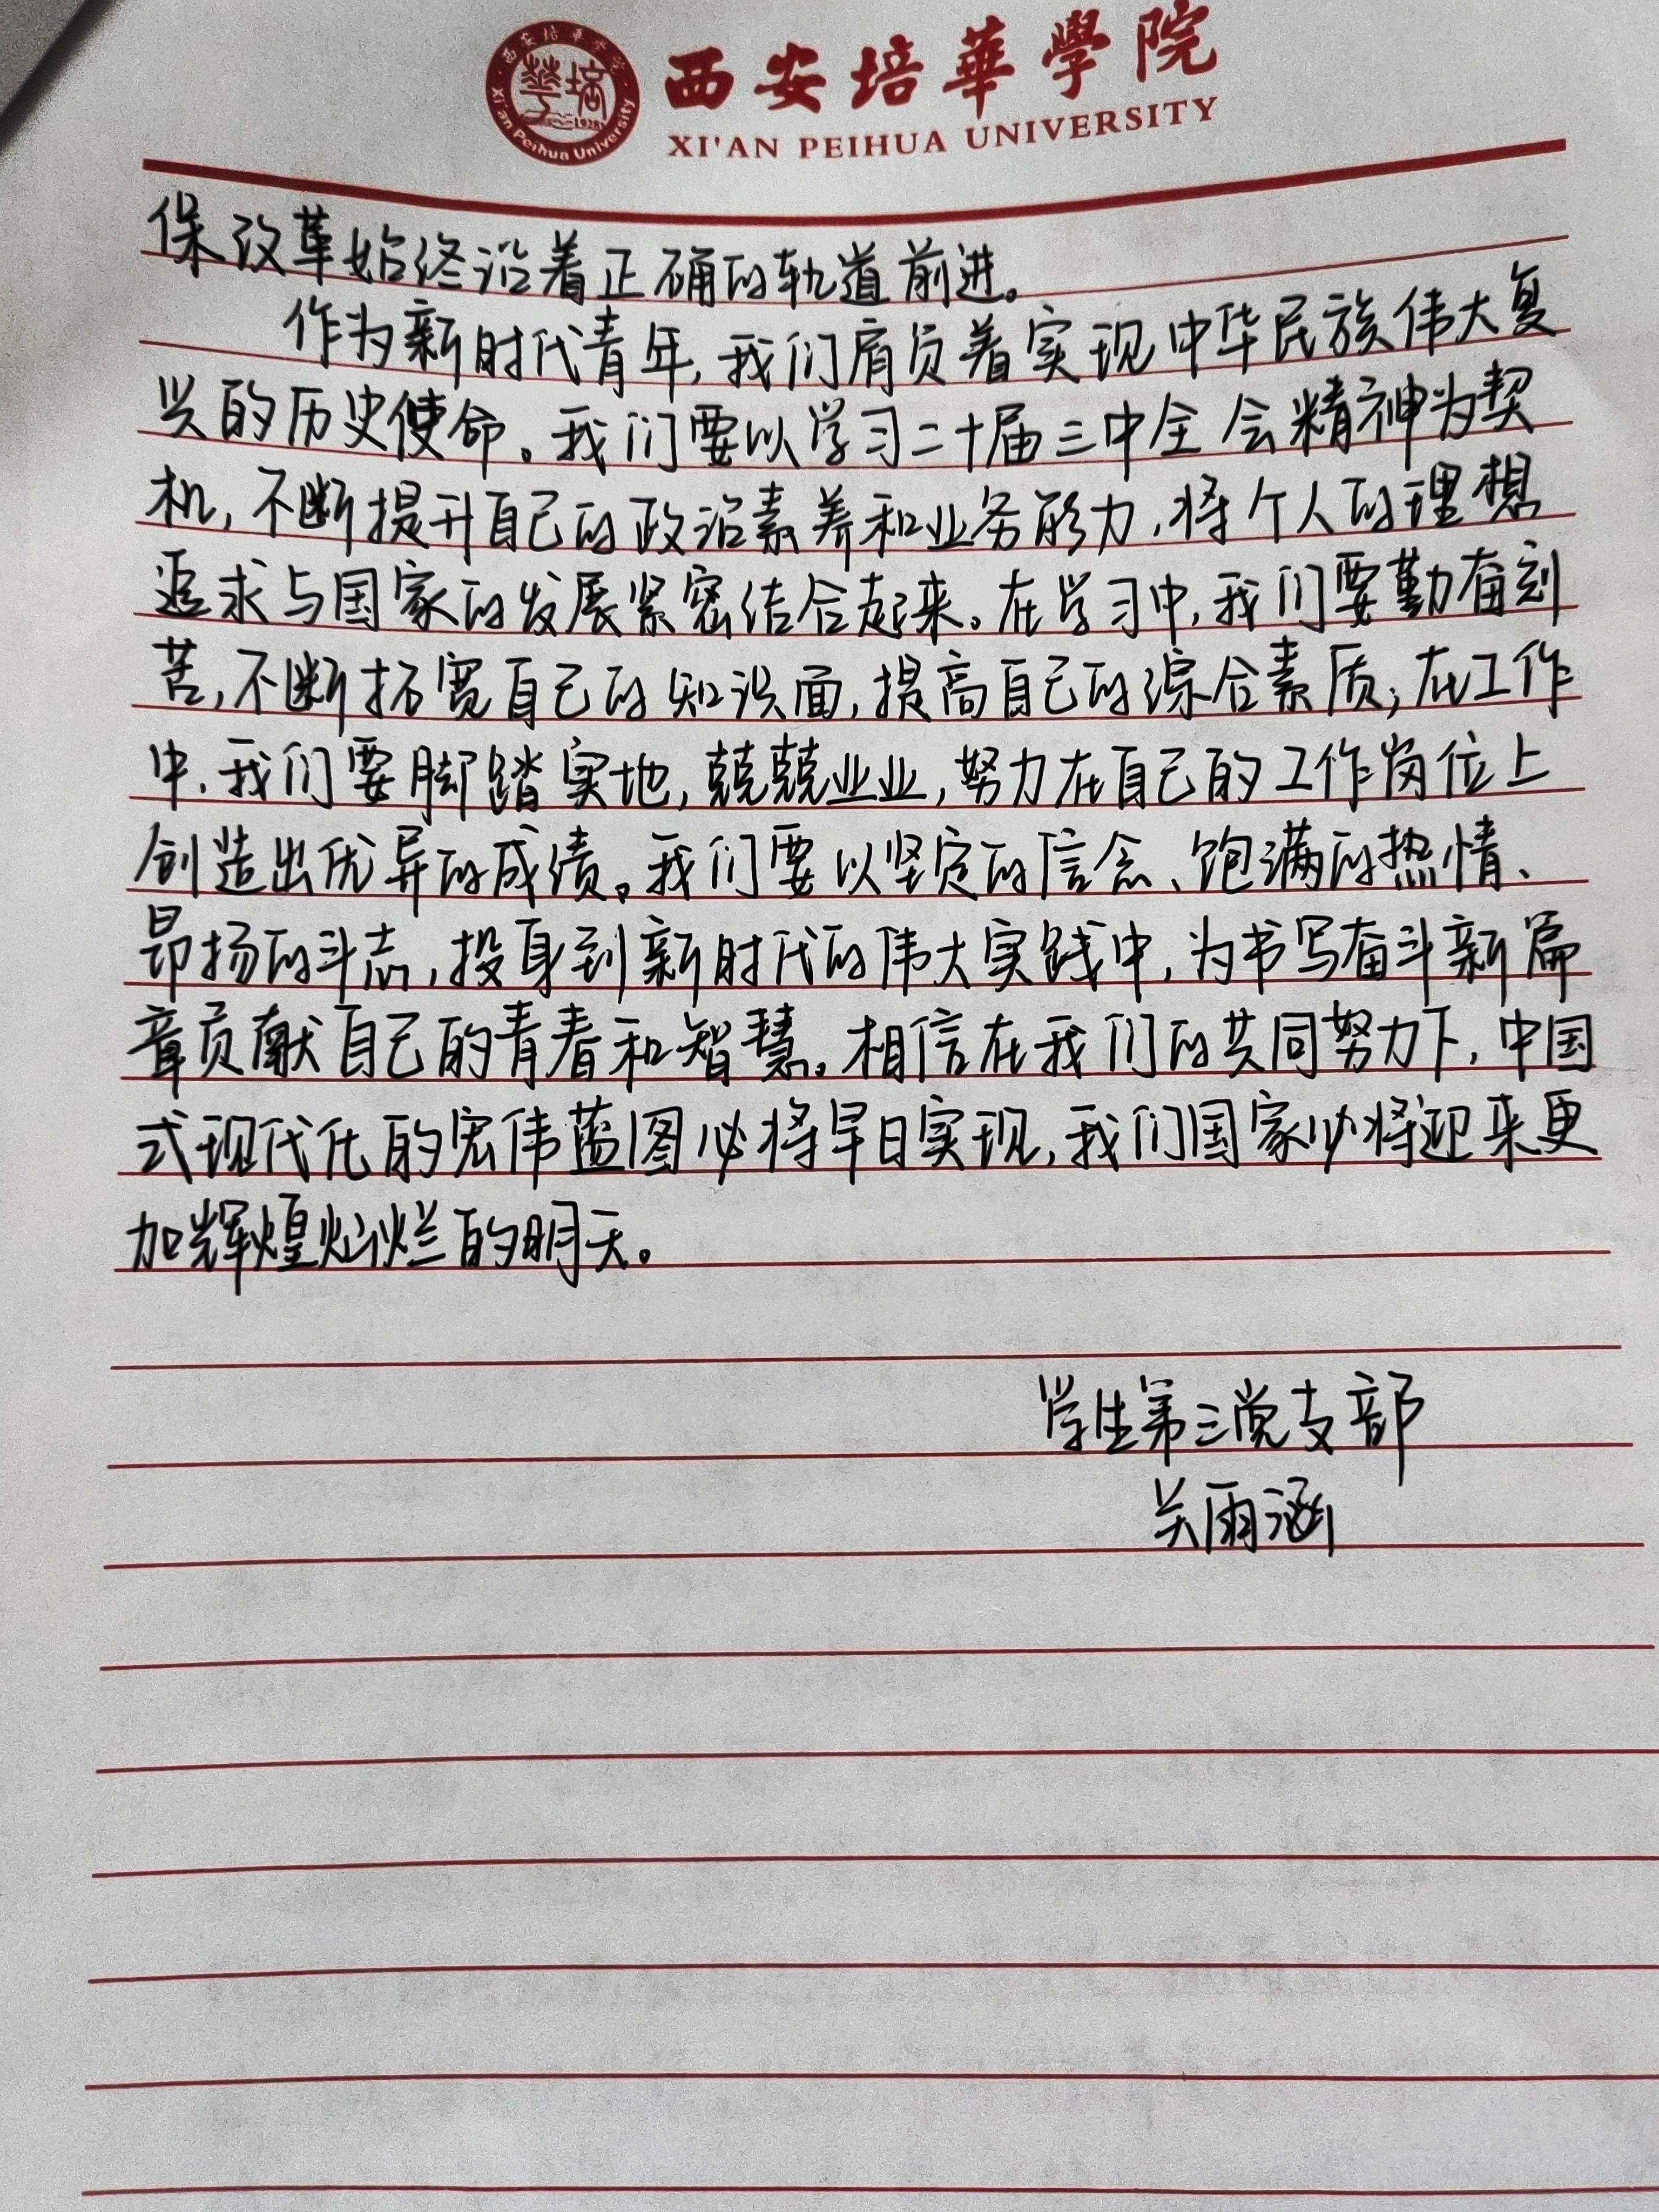 西安培華學院
XI'AN PEIHUA UNIVERSITY
西安培華学院
培華
1928
Xi'an Peihua University
保改革始终沿着正确的轨道前进。
作为新时代青年,我们肩负着实现中华民族伟大复
兴的历史使命。我们要以学习二十届三中全会精神为契
机,不断提升自己的政治素养和业务能力,将个人的理想
追求与国家的发展紧密结合起来。在学习中,我们要勤奋刻
苦,不断拓宽自己的知识面,提高自己的综合素质;在工作
中,我们要脚踏实地,兢兢业业,努力在自己的工作岗位上
创造出优异的成绩。我们要以坚定的信念、饱满的热情、
昂扬的斗志,投身到新时代的伟大实践中,为书写奋斗新篇
章贡献自己的青春和智慧。相信在我们的共同努力下,中国
式现代化的宏伟蓝图必将早日实现,我们国家必将迎来更
加辉煌灿烂的明天。
学生第三党支部
关雨涵